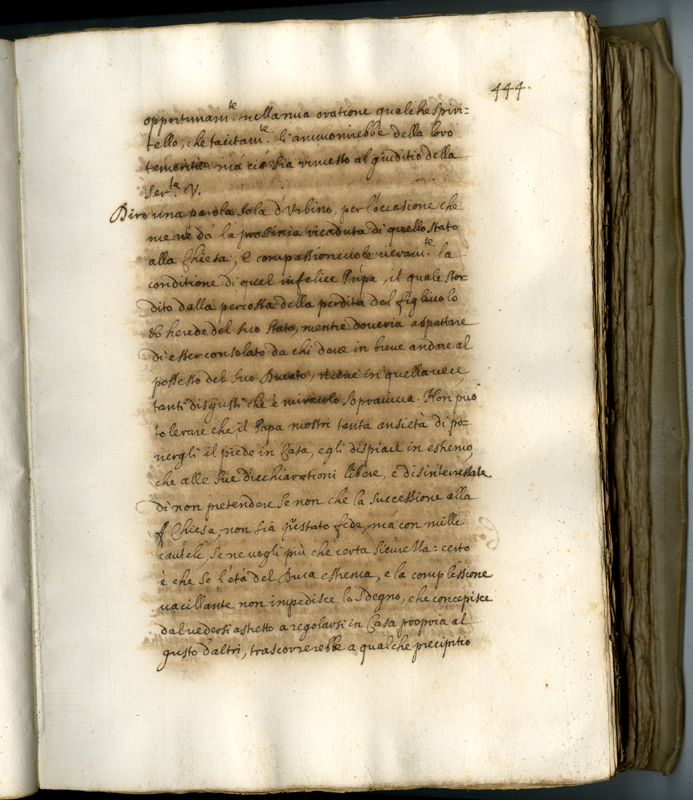 444.
opportunam.te nella mia oratione qualche spiri=
tello, che tacitam.te li ammonirebbe della loro
temerità ma ciò sia rimesso al giuditio della
Ser.tà V.
Dirò una parola sola d'Urbino, per l'occasione che
me ne dà la prossima ricaduta di quello stato
alla Chiesa, è compassionevole veram.te la
conditione di quel infelice Prîpe, il quale stor
dito dalla percossa della perdita del figlivolo
et herede del suo stato, mentre doveria aspettare
di esser consolato da chi deve in breve andare al
possesso del suo Ducato, riceve in quella vece
tanti disgusti che è miracolo sopraviva. Non può
tolerare che il Papa mostri tanta ansietà di po=
nergli il piede in Casa, e gli dispiace in estremo,
che alle sue dicchiarationi libere, e disinteressate
di non pretendere se non che la successione alla
Chiesa, non sia p̃stato fede, mà con mille
cautele se ne vogli più che certa sicurezza: certo
è che se l'età del Duca estrema, e la complessione
vacillante non impedisce lo sdegno, che concepisce
dal vedersi astretto a regolarsi in Casa propria al
gusto d'altri, trascorrerebbe a qualche precipitio